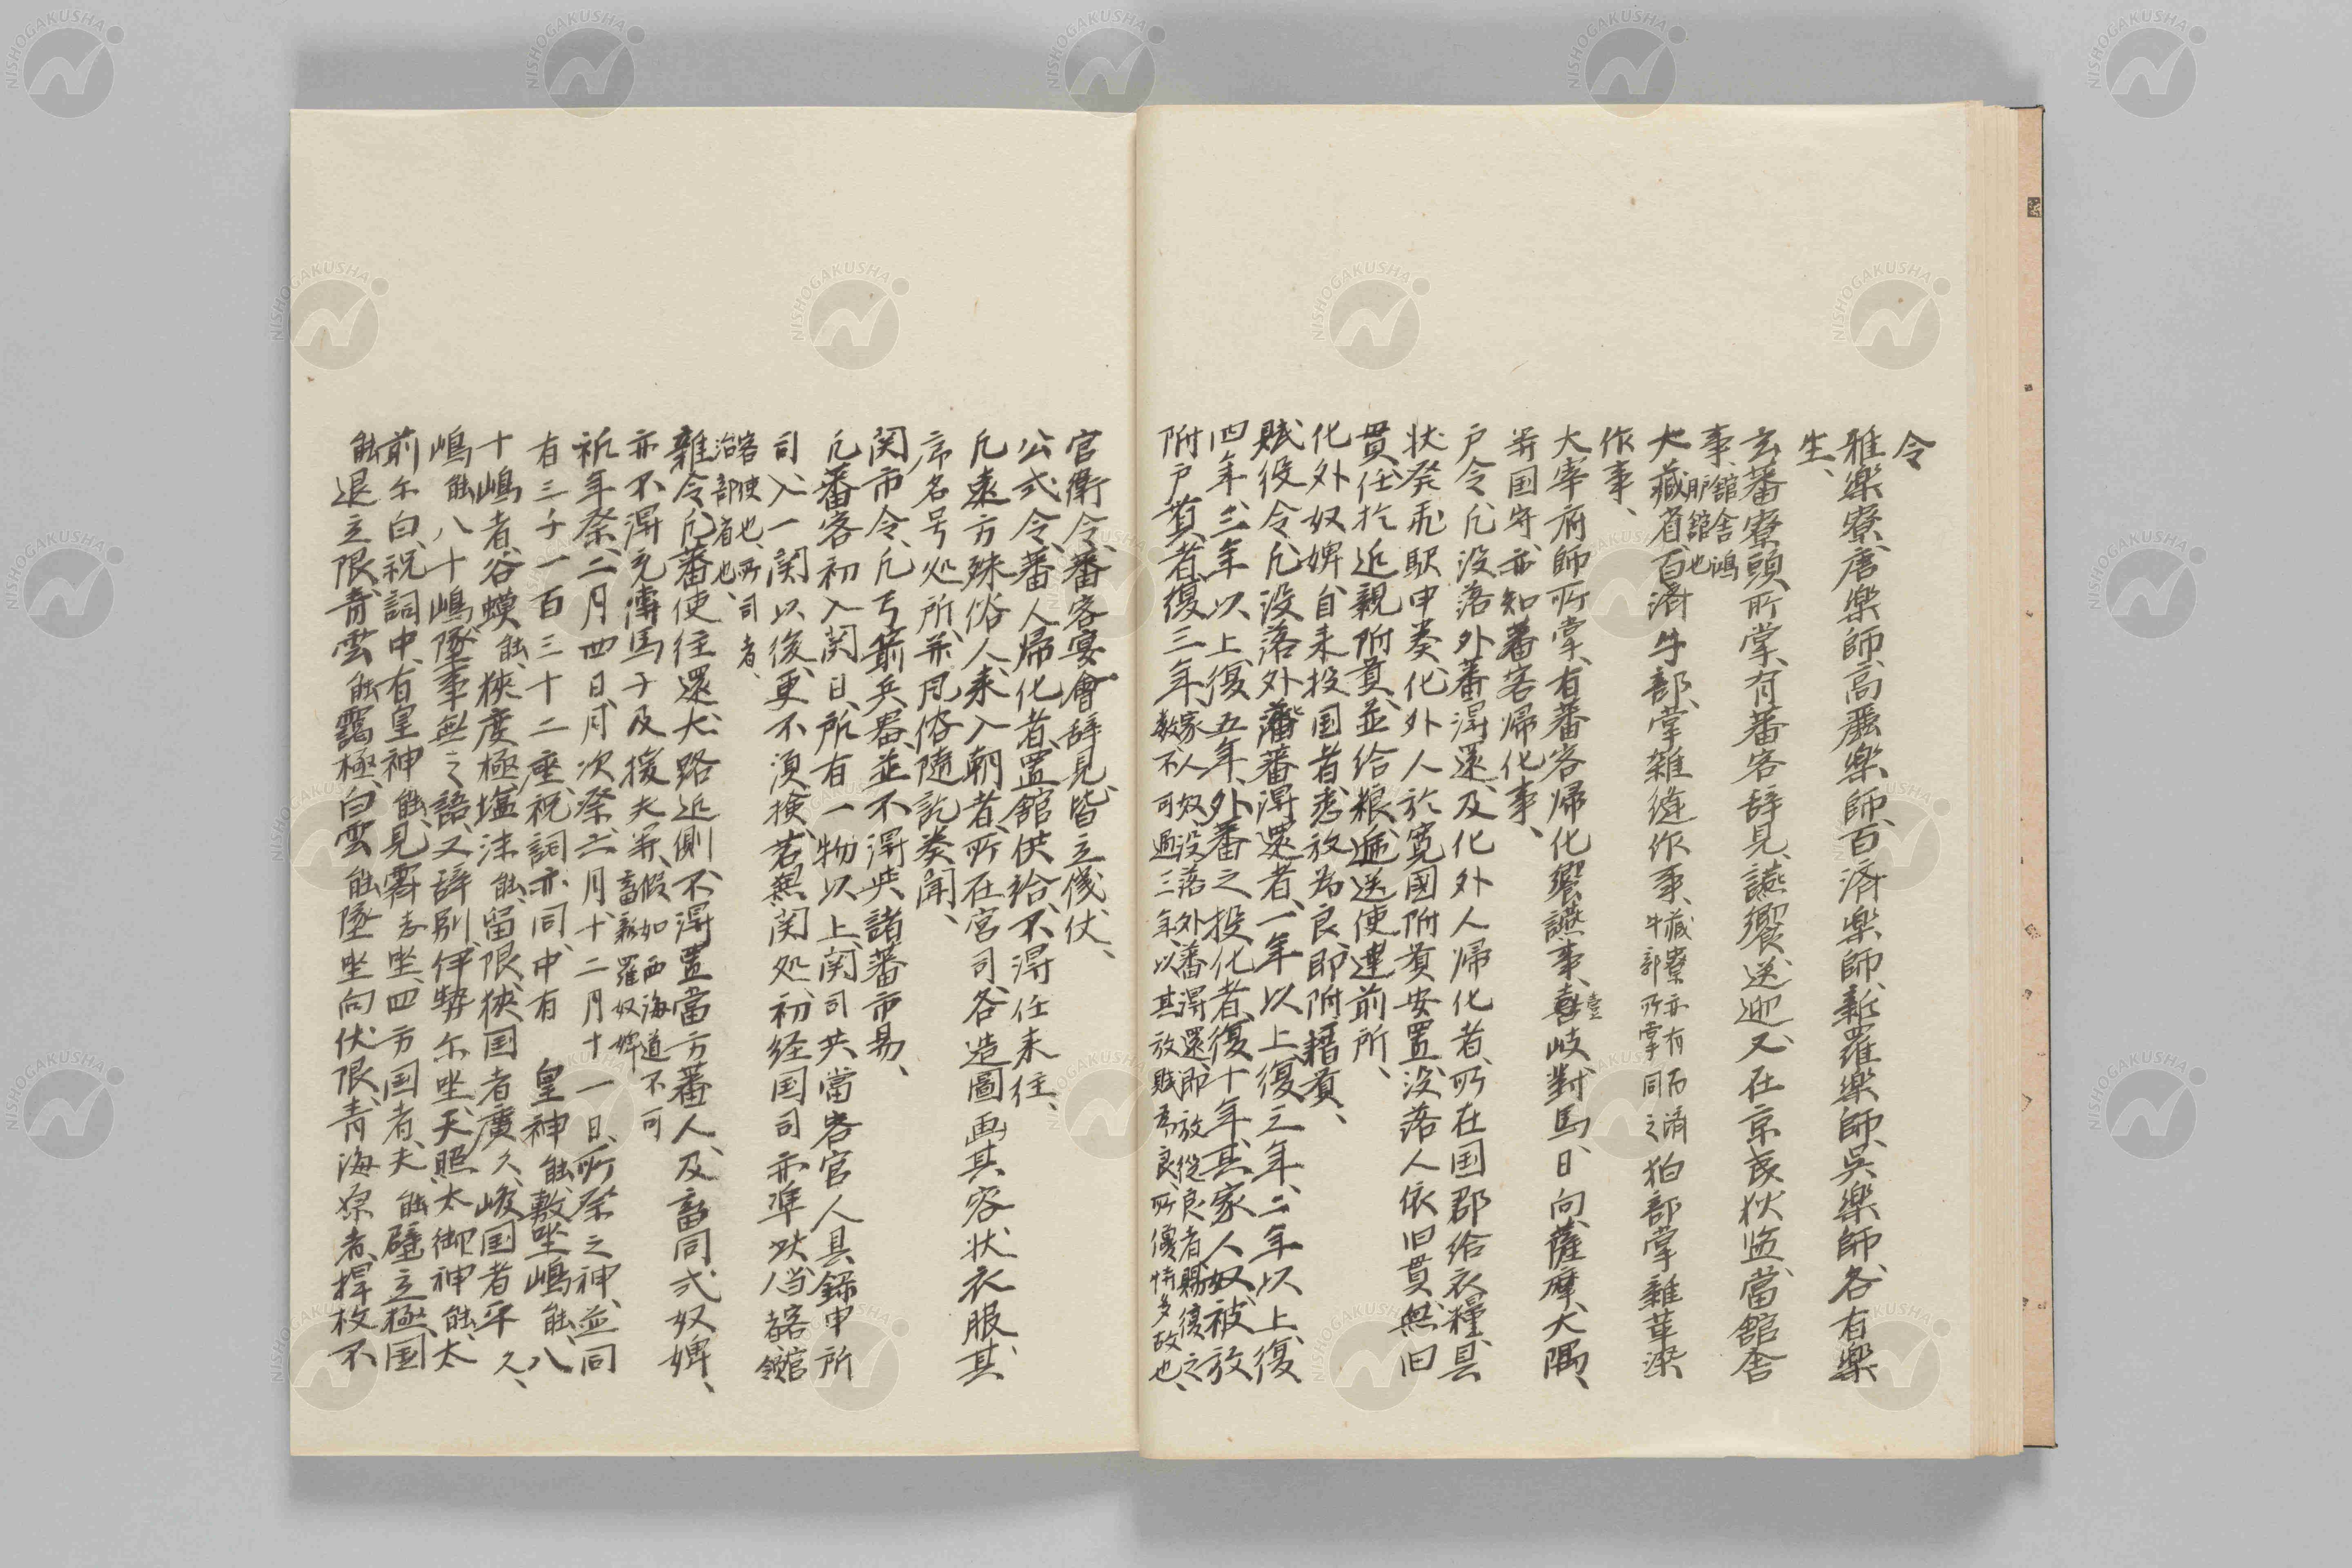 令
雅楽寮、唐楽師、高麗楽師、百済楽師、新羅楽師、呉楽師、各有楽
生、
玄蕃寮頭所掌、有蕃客辞見、讌饗送迎、又在京夷狄、監當館舎
事、館舎鴻
臚館也
大蔵省、百済手部、掌雑縫作事、蔵寮亦有百済
手部所掌同之 狛部掌雑革染
作事、
大宰府師所掌、有蕃客帰化饗讌事、喜壹岐、對馬、日向、薩摩、大隅、
等国守、亦知蕃客帰化事、
戸令、凡没落外蕃得還、及化外人帰化者、所在国郡給衣糧、具
状発飛駅申奏、化外人於寛國附貫安置、没落人依旧貫、無旧
貫任於近親附貫、並給粮遞送使達前所、
化外奴婢、自来投国者、悉放為良、即附籍貫、
賦役令、凡没落外蕃得還者、一年以上、復三年、二年以上、復
四年、三年以上、復五年、外蕃之投化者、復十年、其家人奴、被放
附戸貫者、復三年、家人奴、没落外蕃得還、即放従良者、賜復之
数不可過三年、以其放賎為良、所優恃多故也、
官衛令、蕃客宴會、辞見、皆立儀仗、
公式令、蕃人帰化者、置館供給、不得任来往、
凡遠方殊俗人、来入朝者、所在官司、各造圖画其容状衣服、其
序名号処所、并風俗、随訖奏聞、
関市令、凡弓箭兵器、並不得与諸蕃市易、
凡蕃客初入関日、所有一物以上、関司共當客官人具録申所
司、入一関以後、更不須検、若無関処、初経国司亦準此、
客使也、所司者、
治部省也、
雑令、凡蕃使往還、大路近側、不得置當方蕃人、及畜同式奴婢、
亦不得充傳馬子及援夫等、假如西海道不可
畜新羅奴婢
祈年祭、二月四日、月次祭、六月十二月十一日、所祭之神、並同
有三千一百三十二座、祝詞亦同、中有 皇神能敷坐嶋能、八
十嶋者、谷蟆能狭度極、塩沫能留限、狭国者廣久、峻国者平久、
嶋能八十嶋墜事無之語、又辞別、伊勢尓坐、天照太御神能太
前尓白、祝詞中、有皇神能見霽志坐四方国者、天能壁立極、国
能退立限、青雲能靄極、白雲能墜坐向伏限、青海原者、棹枚不